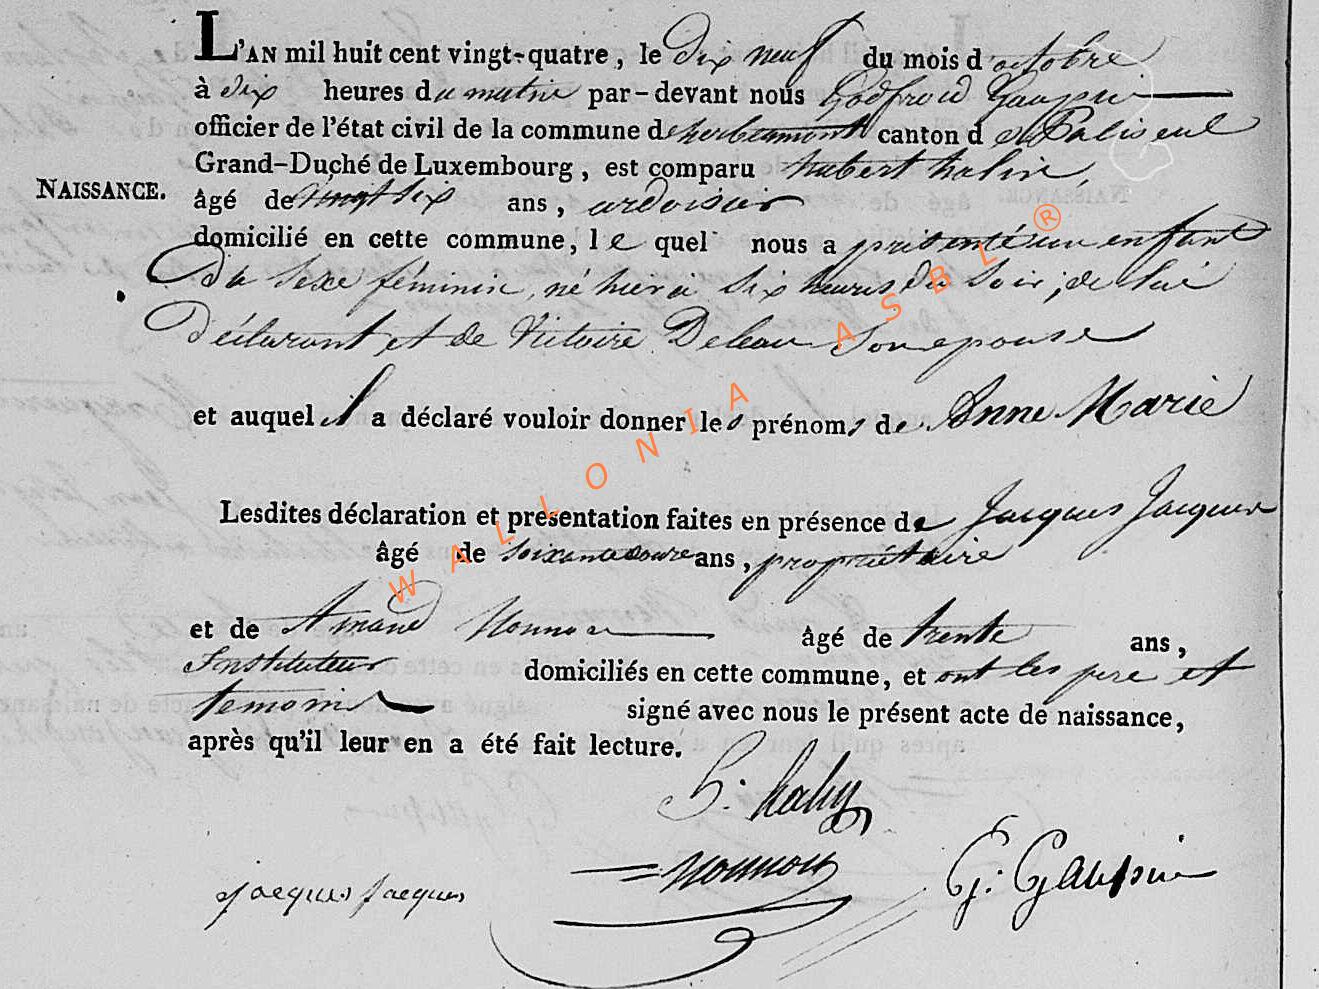 L'AN mil huit cent vingt-quatre, le dix neuf du mois d'octobre
à dix heures du matin par-devant nous Godfroid Gaupin
officier de l'état civil de la commune de herbeumont canton d e Paliseul
Grand-Duché de Luxembourg, est comparu hubert
NAISSANCE.
âgé de vingt six ans, ardoisier
domicilié en cette commune, le quel nous a présenté un enfant
du sexe féminin, né hier à six heures du soir, de lui
déclarant et de Victoire Deleau son epouse
et auquel il a déclaré vouloir donner les prénoms de Anne Marie
Lesdites déclaration et presentation faites en présence de Jacques Jacques
âgé de ans, propriétaire
et de Amand Nonnon âgé de trente ans,
Instituteur domiciliés en cette commune, et ont les pere et
temoins signé avec nous le présent acte de naissance,
après qu'il leur en a été fait lecture.
Nonnon
Jacques Jacques G. Gaupin
WALLONIA ASBL ®